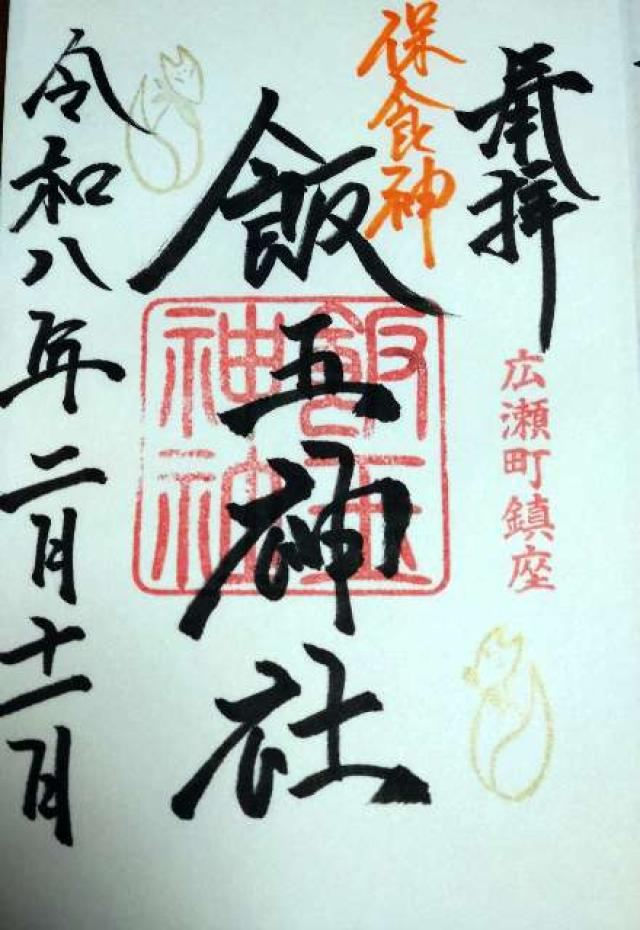 奉拝
広瀬町鎮座
保食神
飯玉神社
飯玉
神社
令和八年二月十一日